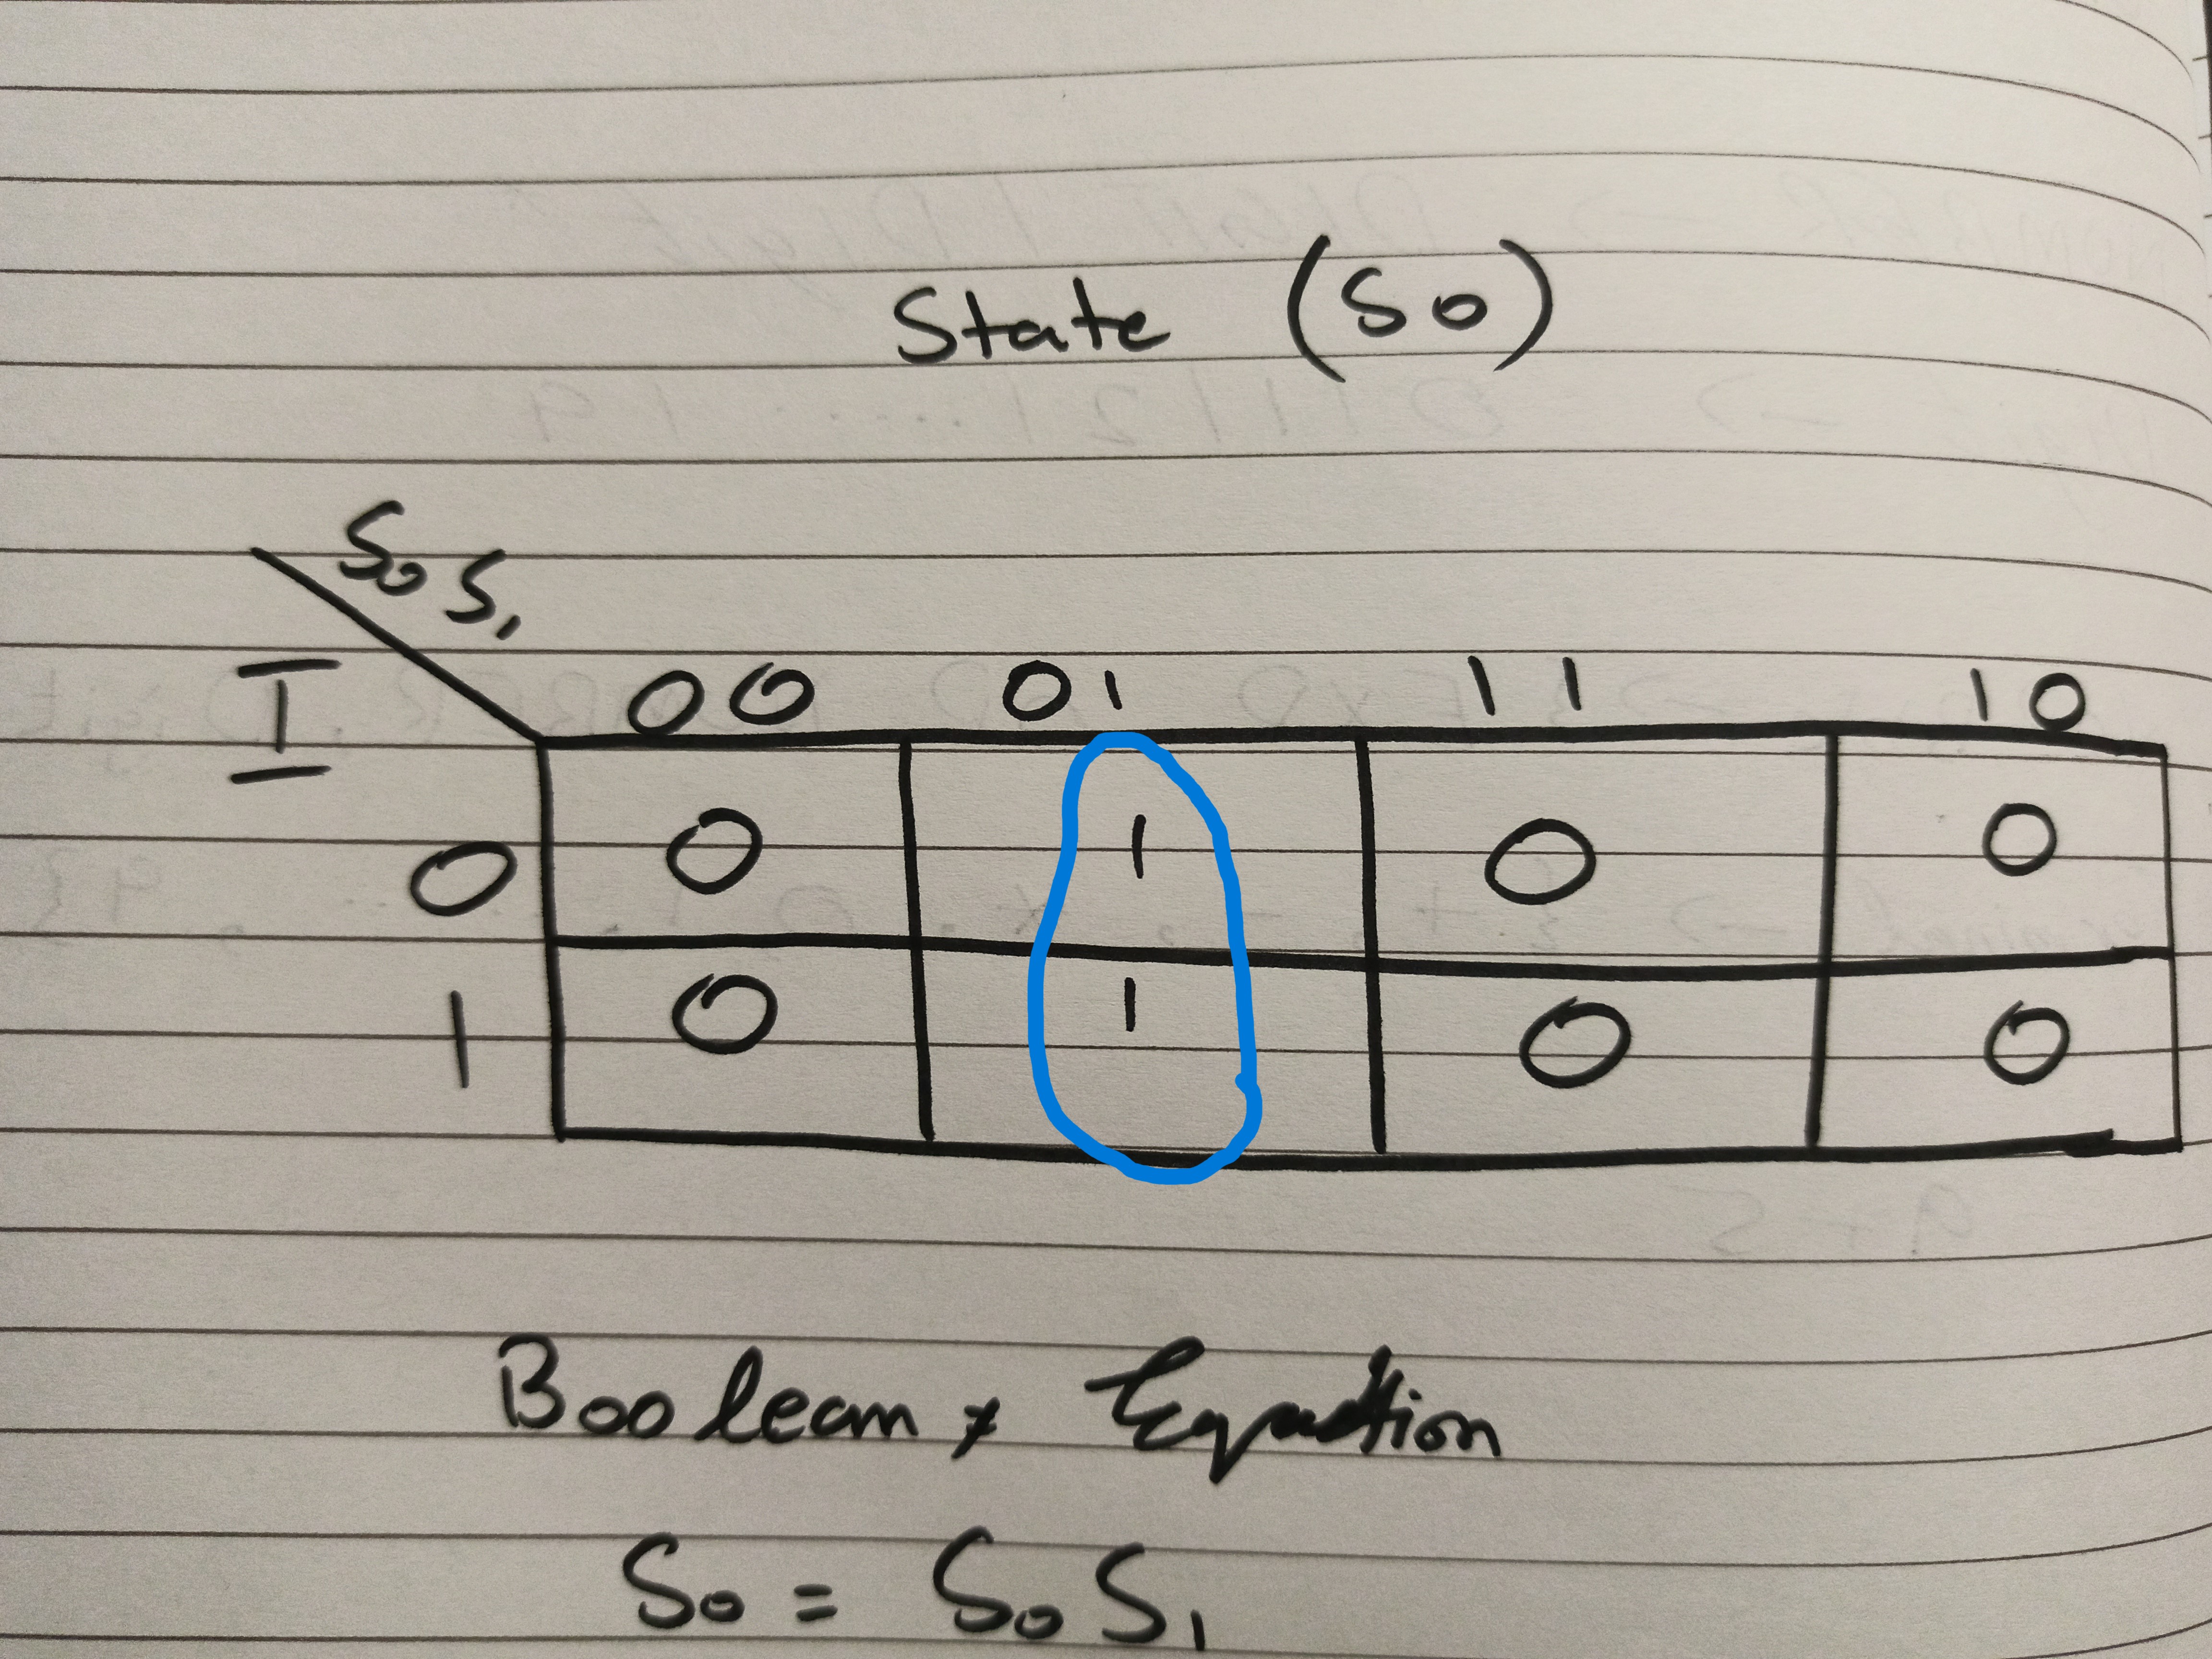 State (S0)
S0 S1
I
00 01 11 10
0 0 1 0 0
1 0 1 0 0
Boolean Equation
S0 = S0 S1